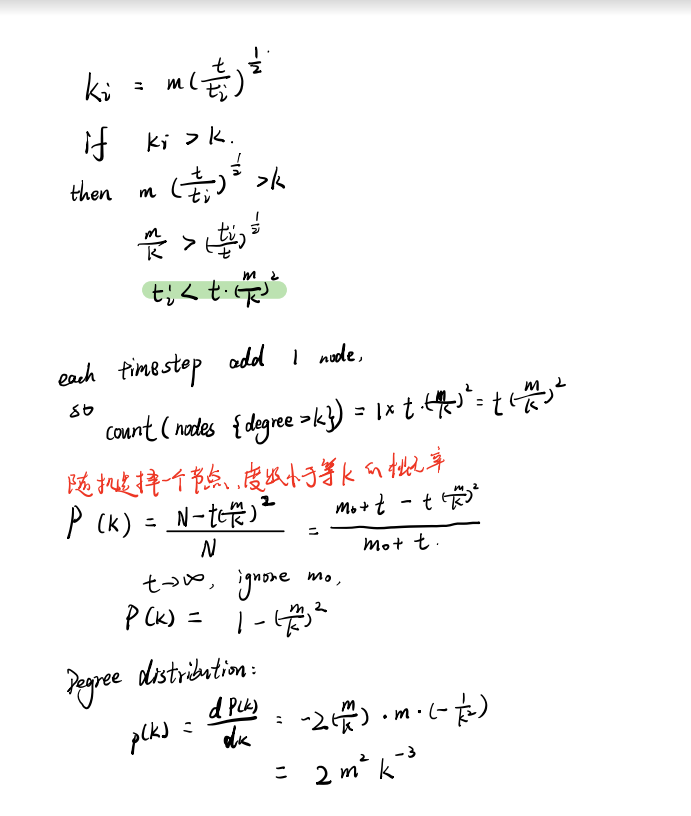 kᵢ = m(t/tᵢ)^(1/2)
if kᵢ > k.
then m (t/tᵢ)^(1/2) > k
m/k > (tᵢ/t)^(1/2)
tᵢ < t·(m/k)²
each timestep add 1 node,
so
count(nodes {degree > k}) = 1 × t·(m/k)² = t(m/k)²
随机选择一个节点、度数小于等 k 的概率
P(k) = (N - t(m/k)²)/N = (m₀ + t - t(m/k)²)/(m₀ + t.)
t → ∞, ignore m₀,
P(k) = 1 - (m/k)²
Degree distribution:
p(k) = dP(k)/dk = -2(m/k)·m·(-1/k²)
= 2m²k⁻³